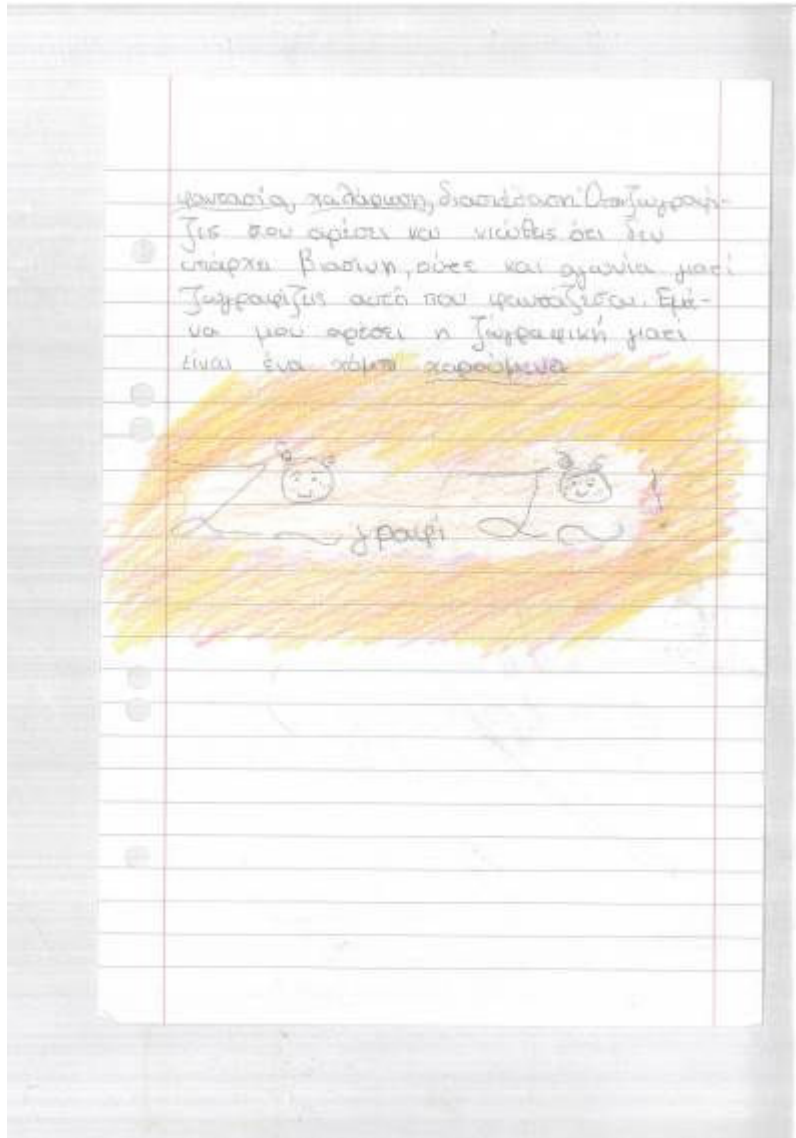 φαντασία, χαλάρωση, διασκέδαση. Όταν ζωγραφί-
ζεις σου αρέσει και νιώθεις ότι δεν
υπάρχει βιασύνη, ούτε και αγωνία γιατί
ζωγραφίζεις αυτό που φαντάζεσαι. Εμέ-
να μου αρέσει η ζωγραφική γιατί
είναι ένα χόμπι χαρούμενο
γραφί